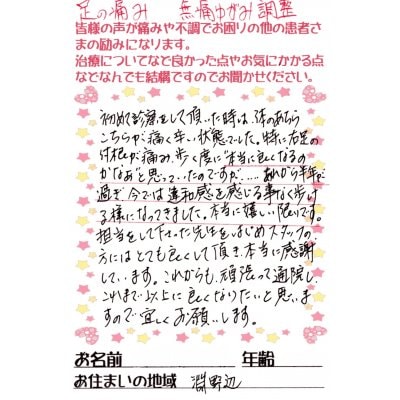 足の痛み　無痛ゆがみ調整
皆様の声が痛みや不調でお困りの他の患者さ
まの励みになります。
治療についてなど良かった点やお気にかかる点
などなんでも結構ですのでお聞かせください。
初めて診療をして頂いた時は、体のあちら
こちらが痛く辛い状態でした。特に右足の
付根が痛み、歩く度に"本当に良くなるの
かなあ"と思っていたのですが、……あれから半年が
過ぎ今では違和感を感じる事なく歩け
る様になってきました。本当に嬉しい限りです。
担当をして下さった先生をはじめスタッフの
方にはとても良くして頂き本当に感謝
しています。これからも、頑張って通院し、
これまで以上に良くなりたいと思いま
すので宜しくお願いします。
お名前　年齢
お住まいの地域　淵野辺